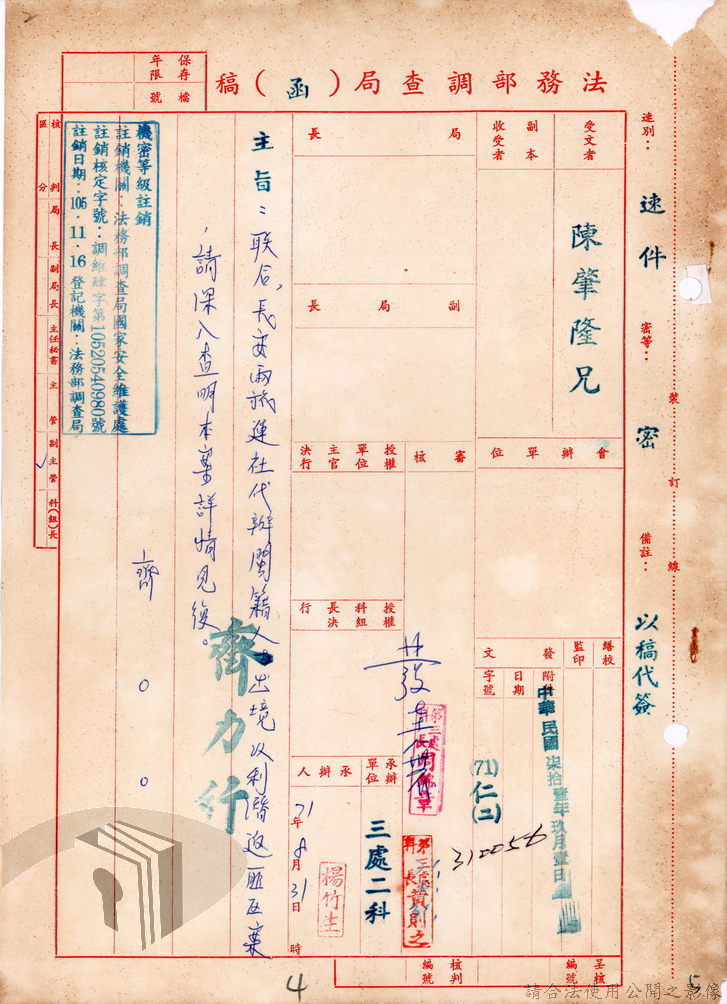 法務部調查局（函）稿
保存年限
檔號
速別：速件
密等：密
備註：以稿代簽
裝
訂
線
受文者
陳肇隆兄
副本收受者
局長
副局長
會辦單位
審核
授權單位主官決行
授權科組長決行
繕校
監印
發文
附件
日期
中華民國柒拾壹年玖月壹日
字號
(71)仁(二)
310056
第三處
第三處
科長
承辦單位
三處二科
承辦人
71年8月31日 時
楊竹生
主旨：联合，長安兩旅運社代辦閩籍人士出境以利潛返匪區案
，請深入查明本案詳情見復。
齊○○
齊力行
機密等級註銷
註銷機關：法務部調查局國家安全維護處
註銷核定字號：調維肆字第10520540980號
註銷日期：105．11．16 登記機關：法務部調查局
核判區分
局長
副局長
主任秘書
主管
副主管
科(組)長
呈核編號
核判編號
4
5
2
請合法使用公開之影像